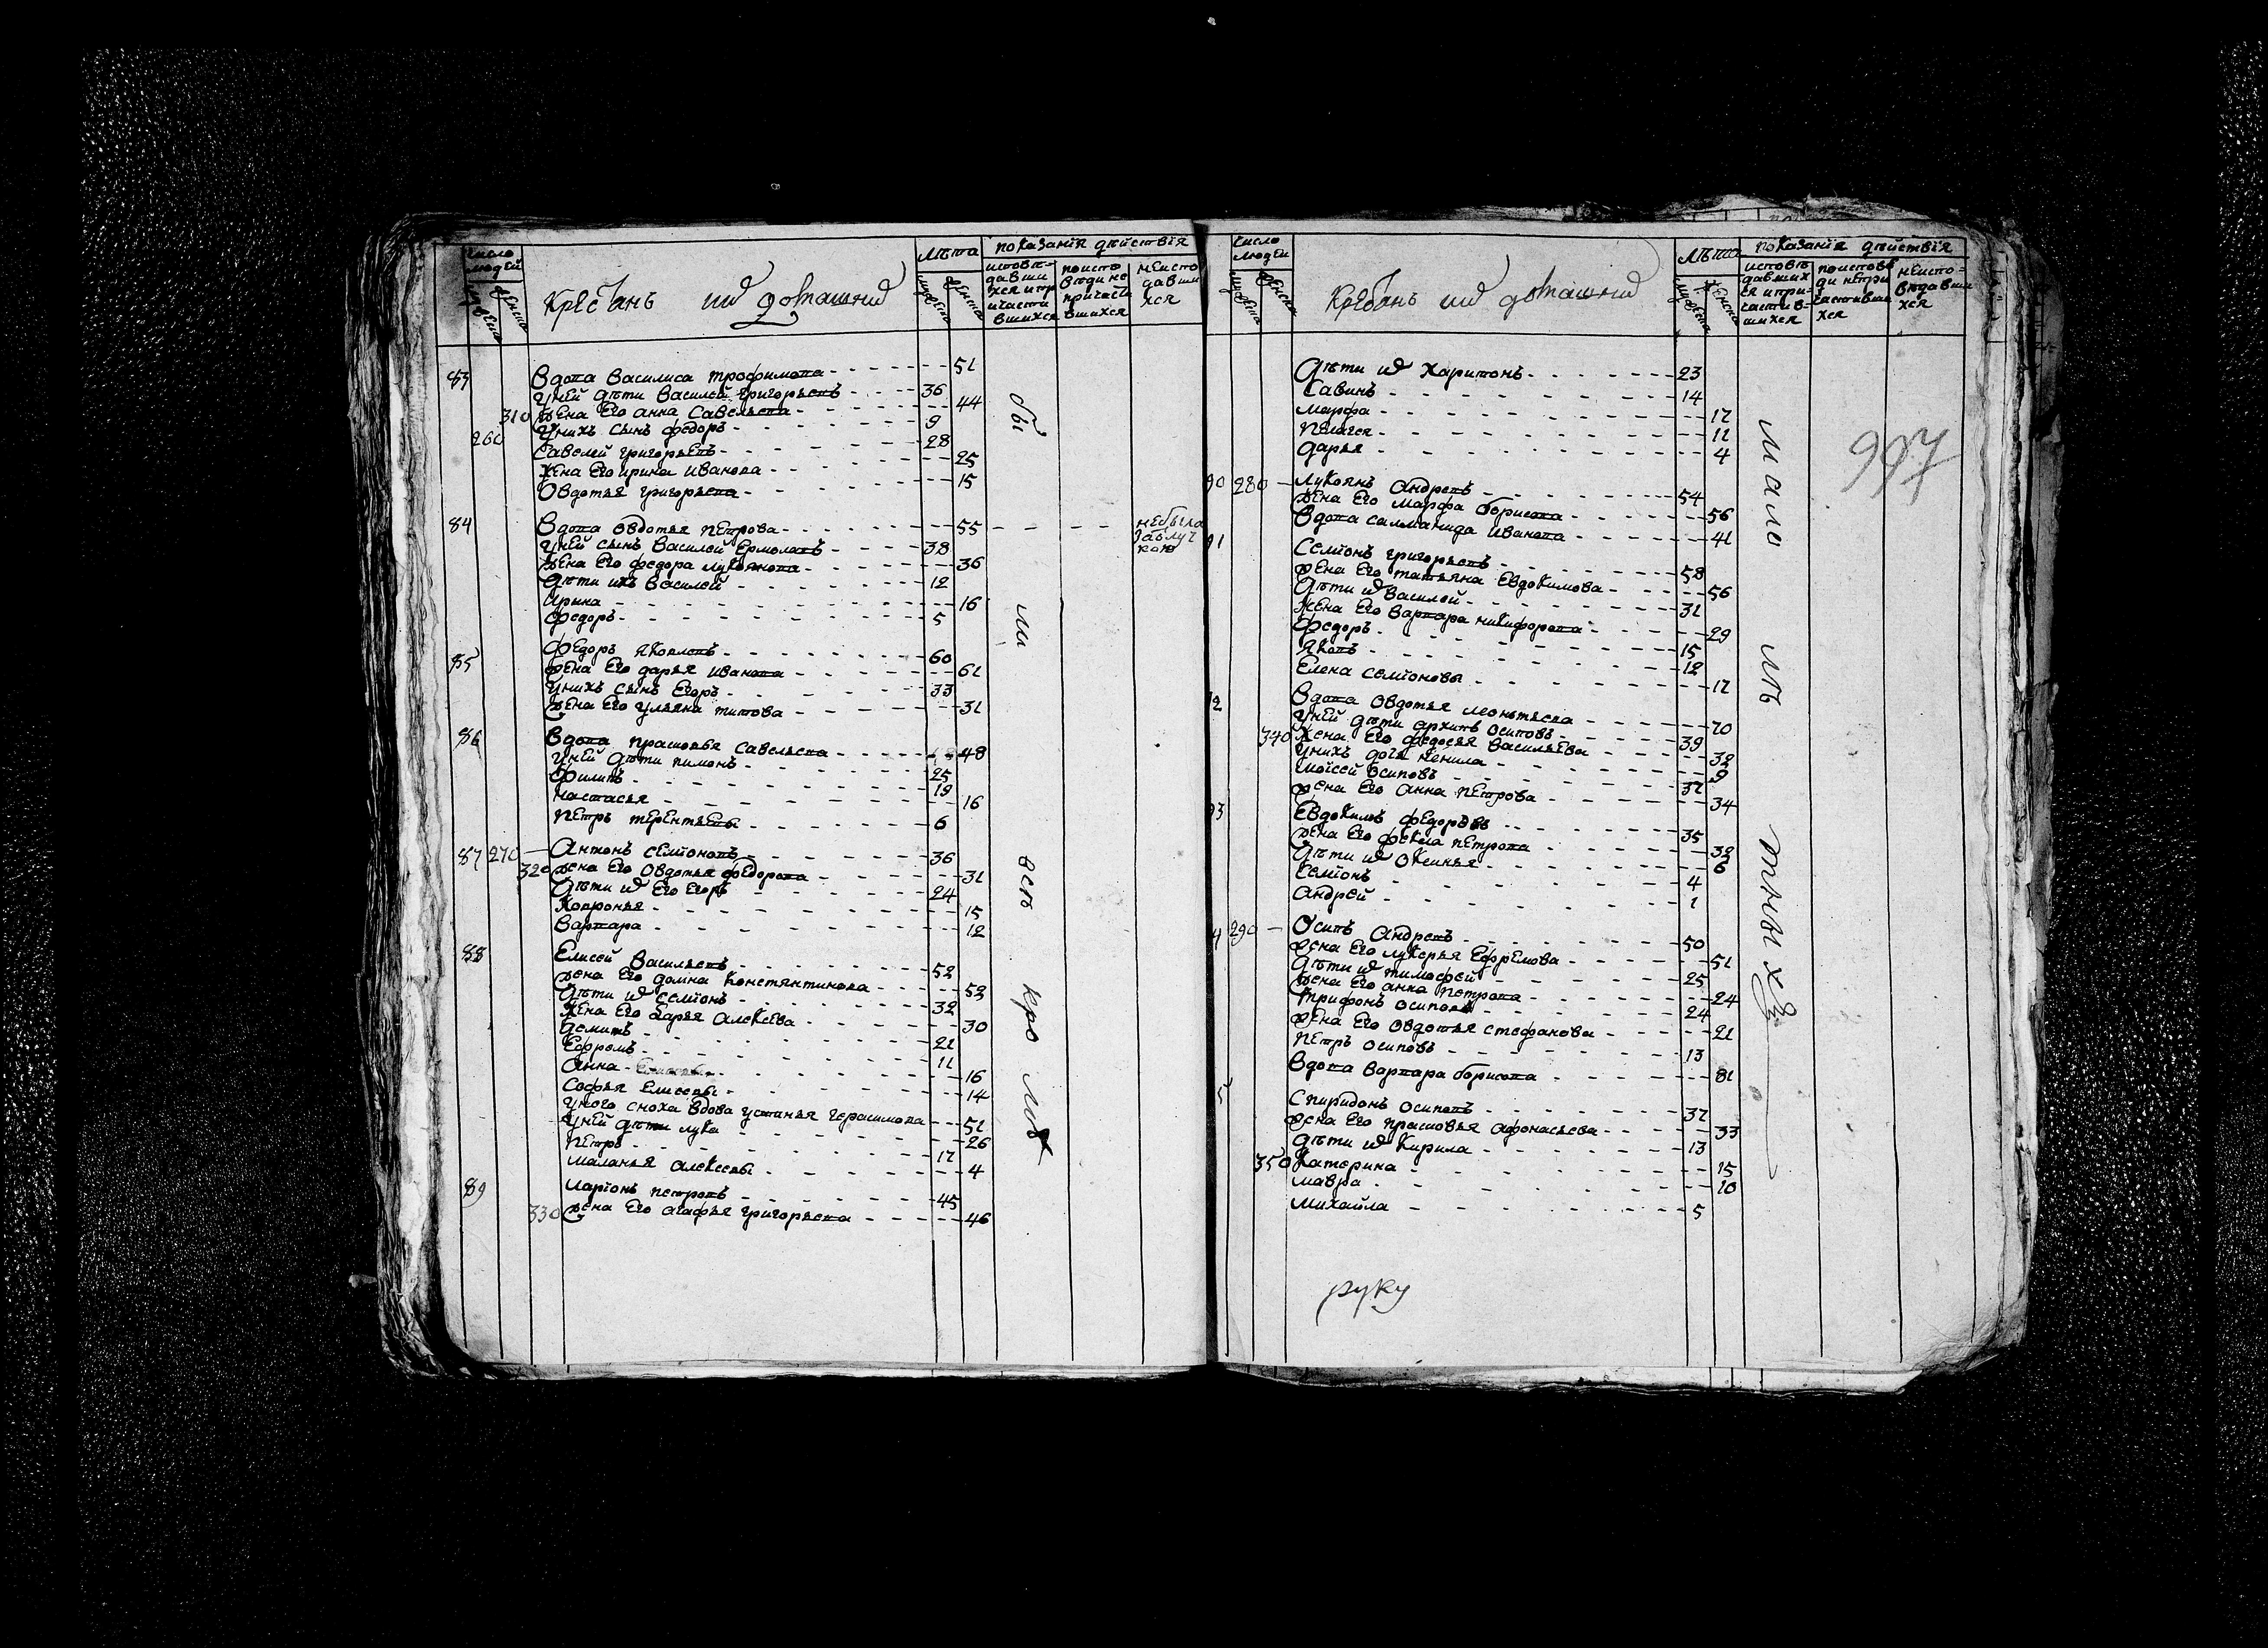 число людей
мужеска
женска
Крестьянъ их домашних
лѣта
мужеска
женска
показанія дѣйствія
исповѣ-
давши
хся и пр
ичасти
вшихся
поиспо
вѣди не
причасти
вшихся
неиспо
давши
хся
83 Вдова Василиса трофимова - 51
У неи дѣти Василей григорьевъ - 36
310 жена Его анна Савельева - 44
260 У нихъ сынъ федоръ - 9
Савелей григорьевъ - 28
жена Его ирина иванова - 25
Овдотья григорьева - 15
84 Вдова овдотья петрова - 55 - - - не была
за отлуч
кою
У ней сынъ Василей Ермолавъ - 38
жена Его федора лукоянова - 36
дѣти ихъ Василей - 12
ирина - 16
федоръ - 5
85 федоръ яковлевъ - 60
жена Его дарья иванова - 61
У нихъ сынъ Егоръ - 33
жена Его ульяна титова - 31
86 Вдова прасковья савельева - 48
У ней дѣти пимонъ - 25
филипъ - 19
настасья - 16
петръ терентьевы - 6
87 270 — Антонъ семіоновъ - 36
320 жена Его Овдотья федорова - 31
дѣти их Его Егоръ - 24
Ховронья - 15
Варвара - 12
88 Елисей Васильевъ - 52
жена Его домна Констянтинова - 52
дѣти их семіонъ - 32
жена Его дарья алексева - 30
демитъ - 21
Ефремъ - 11
Анна - 16
Софья Елисевы - 14
У него сноха вдова устинья герасимова - 51
У ней дѣти лука - 26
петръ - 17
маланья алексевы - 4
89 ларіонъ петровъ - 45
330 жена Его агафья григорьева - 46
бы ли всѣ кро мѣ
число людей
мужеска
женска
Крестьянъ их домашних
лѣта
мужеска
женска
показанія дѣйствія
исповѣ
давших
ся и при-
частив-
шихся
поисповѣ
ди непри
частивши
хся
неиспо-
вѣдавши
хся
997
Дѣти их Харитонъ - 23
Савинъ - 14
марфа - 17
пелагея - 11
дарья - 4
90 280 — лукоянъ андревъ - 54
жена Его марфа борисова - 56
Вдова саламанида иванова - 41
91 Семіонъ григорьевъ - 58
жена Его татьяна Евдокимова - 56
Дѣти их Василей - 31
жена Его Варвара никифорова - 29
федоръ - 15
яковъ - 12
Елена семіоновы - 17
92 Вдова Овдотья леонтьева - 70
У ней дѣти архипъ осиповъ - 39
340 жена Его федосья васильева - 32
У нихъ дочь ненила - 9
моїсей осиповъ - 37
жена Его анна петрова - 34
93 Евдокимъ федоровъ - 35
жена Его фекла петрова - 32
Дѣти их оксинья - 6
семіонъ - 4
андрей - 1
94 290 — Осипъ андревъ - 50
жена Его лукерья Ефремова - 51
Дѣти их тимофей - 25
жена Его анна петрова - 24
трифонъ осиповъ - 24
жена Его овдотья стефанова - 21
петръ осиповъ - 13
Вдова варвара борисова - 81
95 Спиридонъ осиповъ - 37
жена Его прасковья афонасьева - 33
Дѣти их Кирила - 13
350 Катерина - 15
мавра - 10
михайла - 5
мало лѣ тных
руку